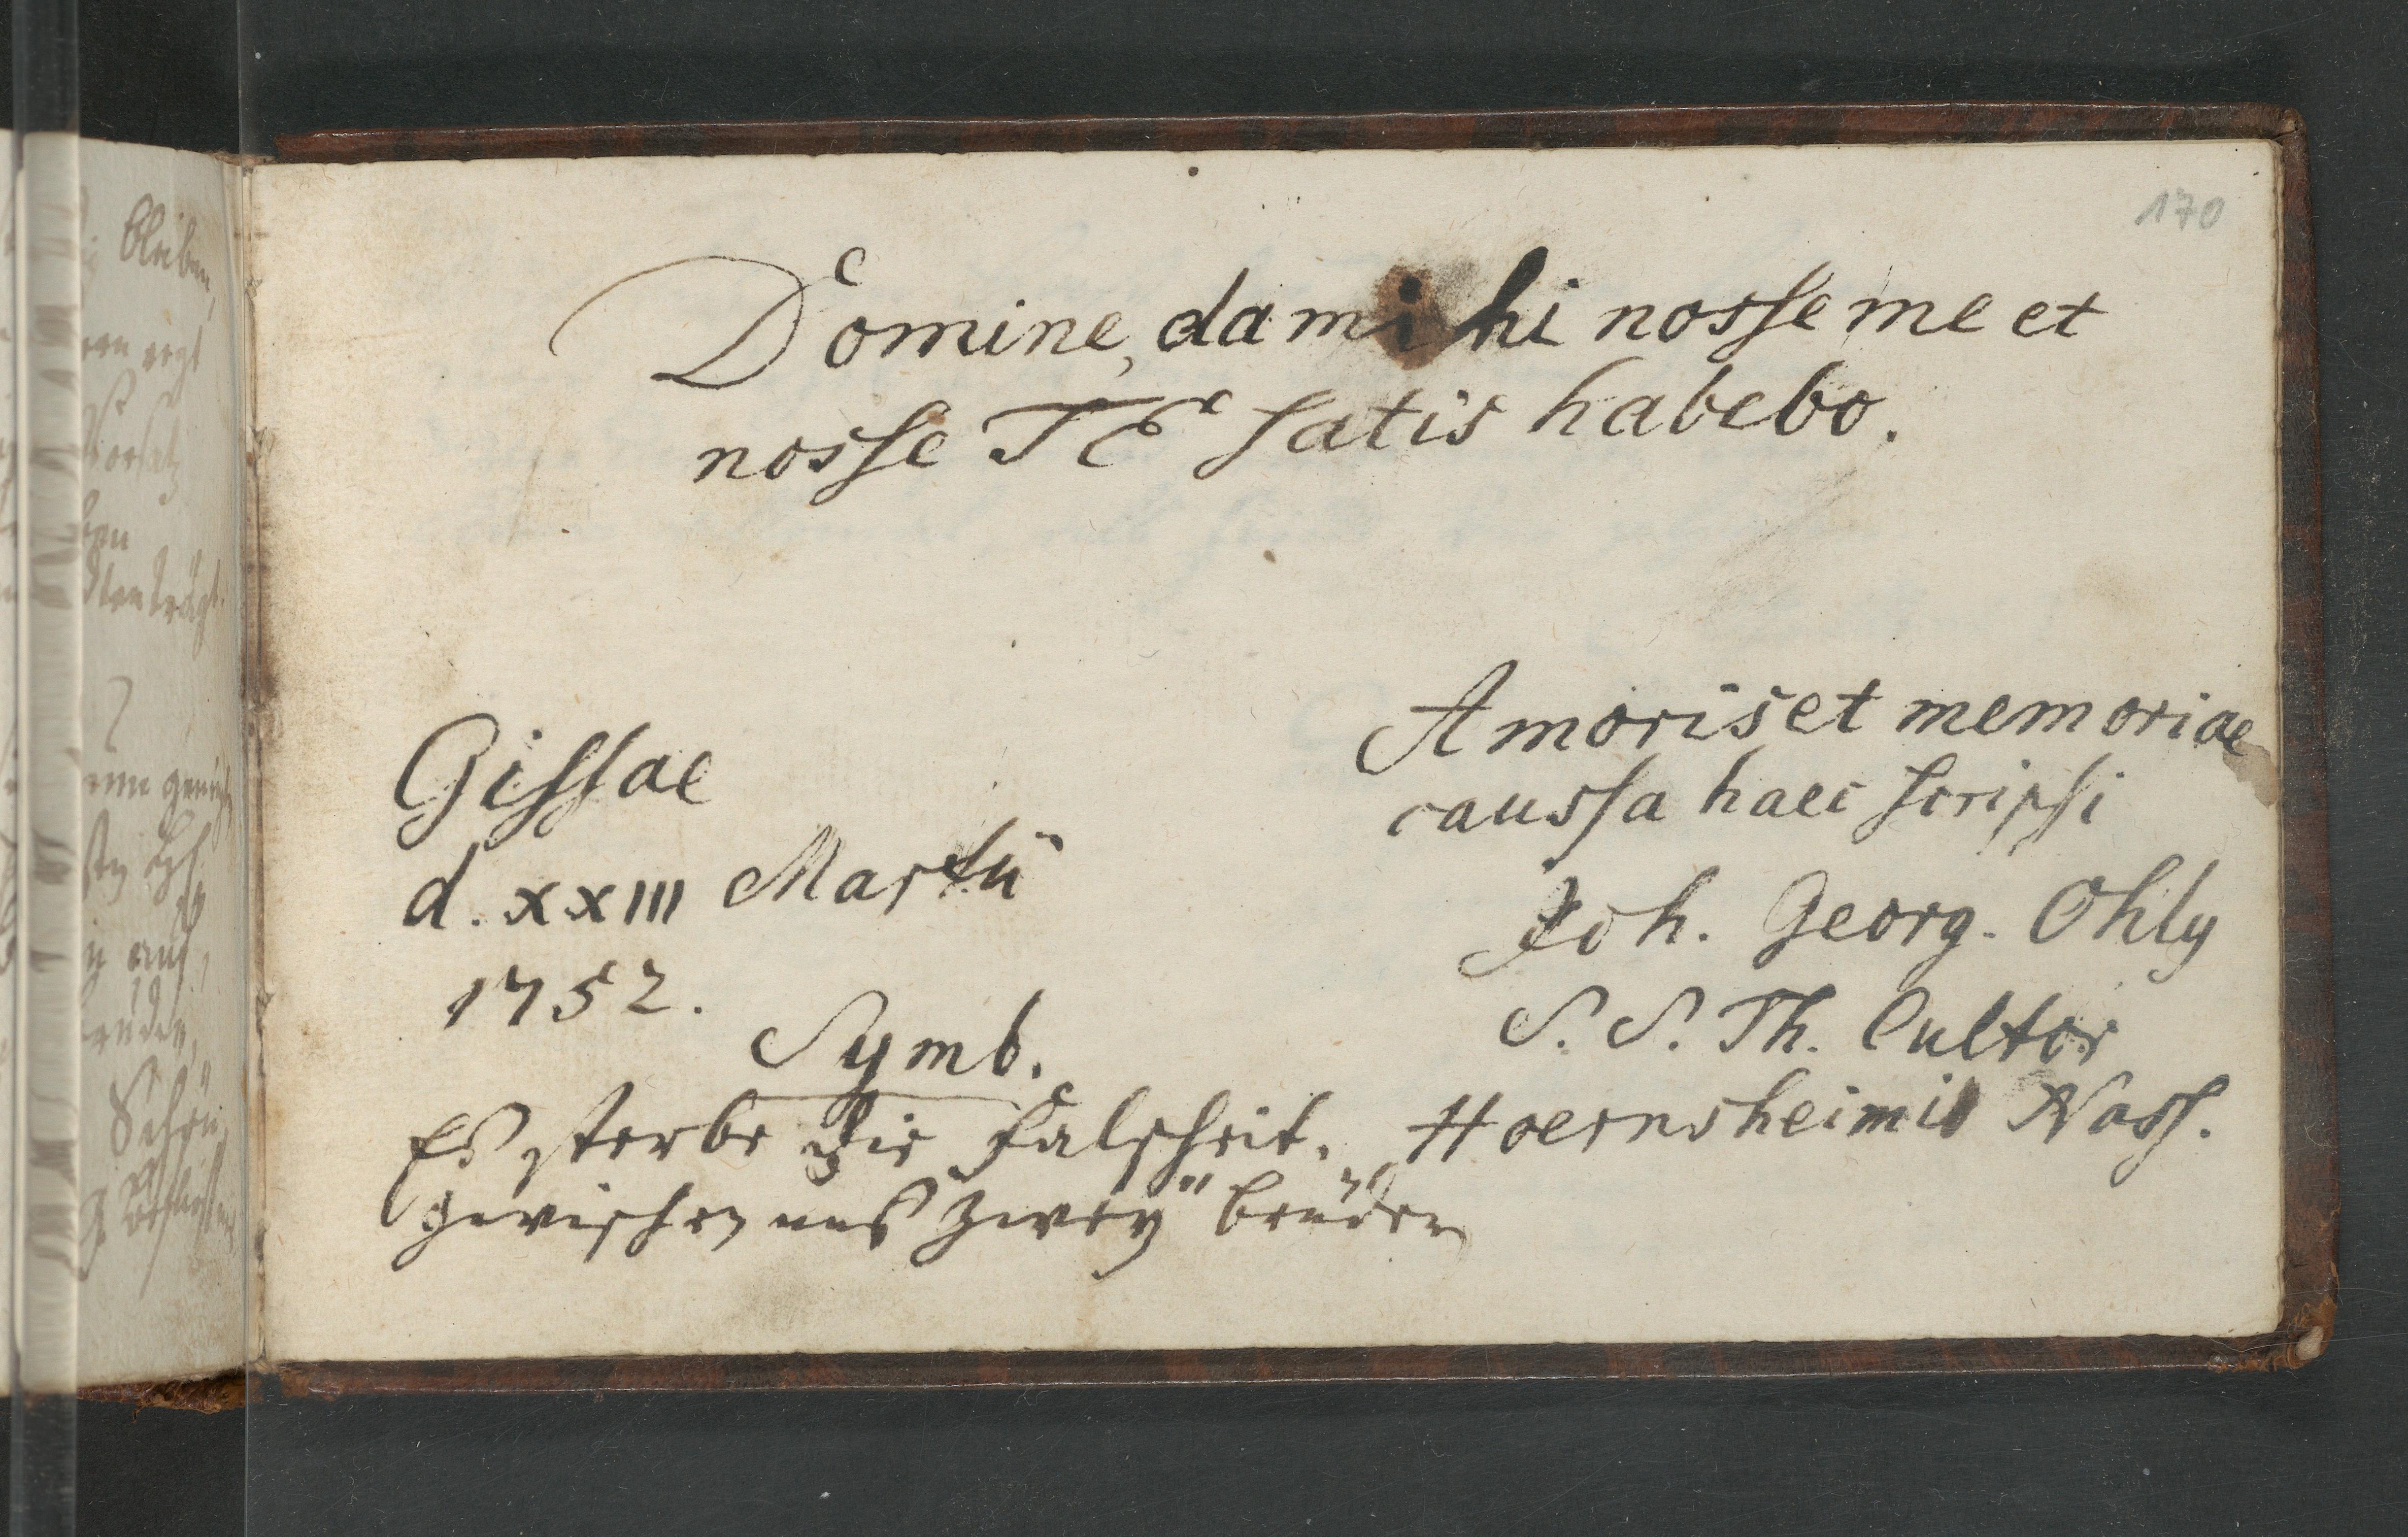 170
Domine, da mihi nosse me et
nosse TE satis habebo.
Gissae
d. XXIII Martii
1752.
Amoris et memoriae
caussa haec scripsi
Joh. Georg. Ohly
S. S. Th. Cultor
Hoernsheimio Nass.
Symb.
Es sterbe die Falschheit.
zwischen uns zwey Brüder
bleiben,